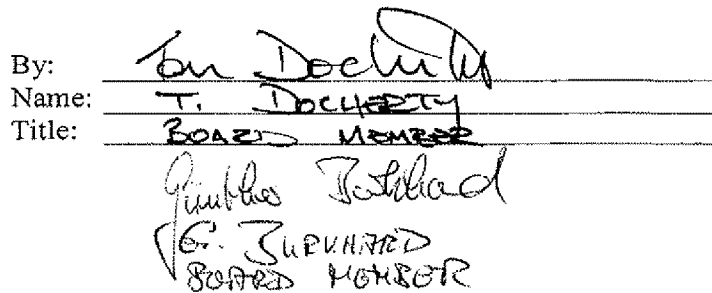 By: Tom Docherty
Name: T. DOCHERTY
Title: BOARD MEMBER
Günther Burkhard
G. BURKHARD
BOARD MEMBER